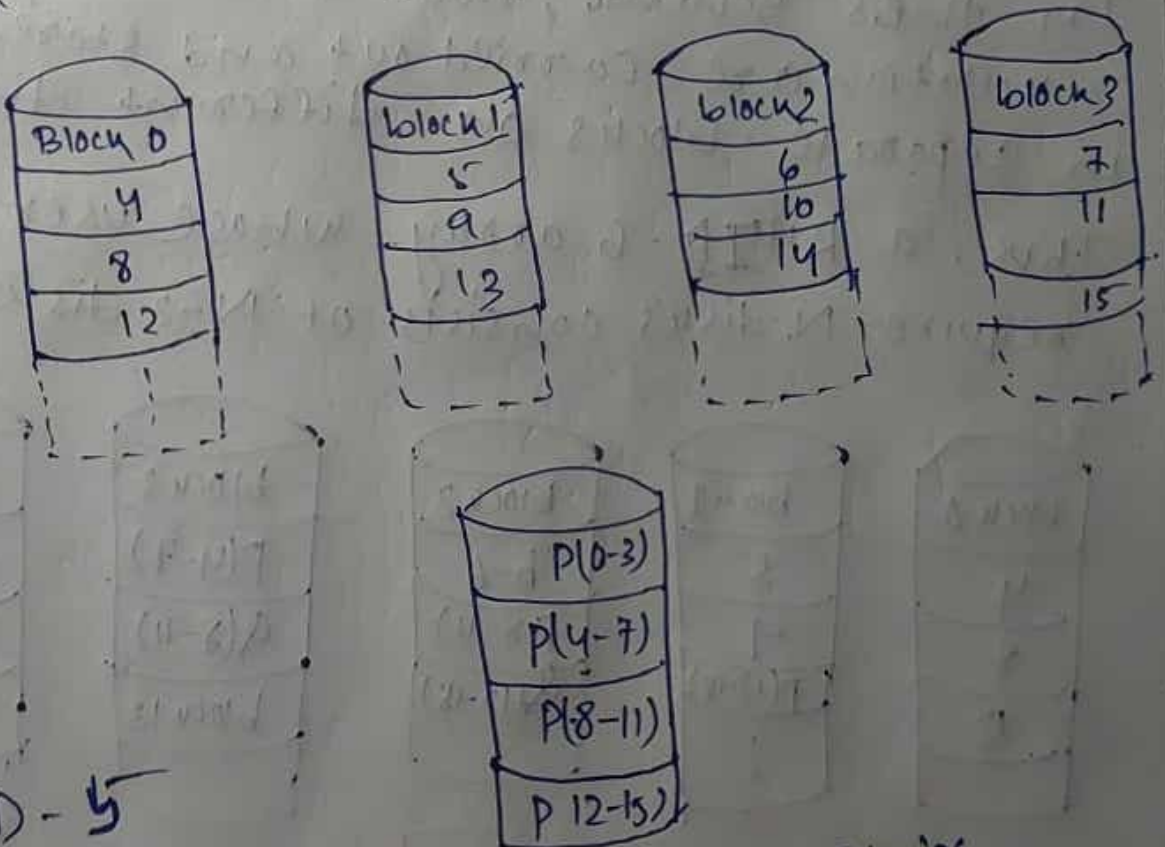 Block 0
4
8
12
block 1
5
9
13
block2
6
10
14
block 3
7
11
15
P(0-3)
P(4-7)
P(8-11)
P 12-15)
D - 5